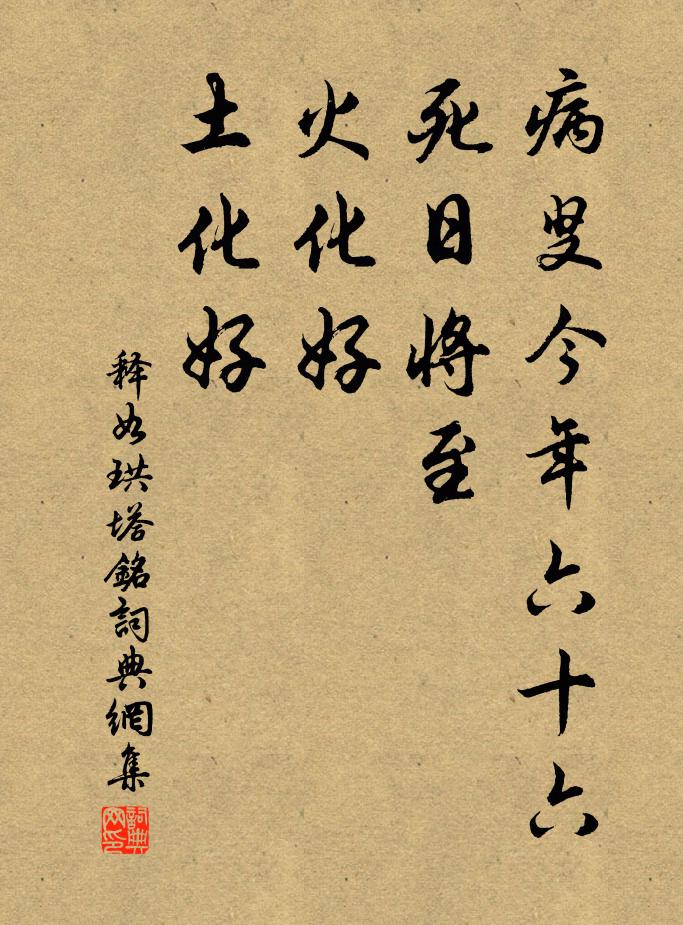 病叟今年六十六
死日将至
火化好
土化好
释如珙塔銘詞典網集
詞典网印